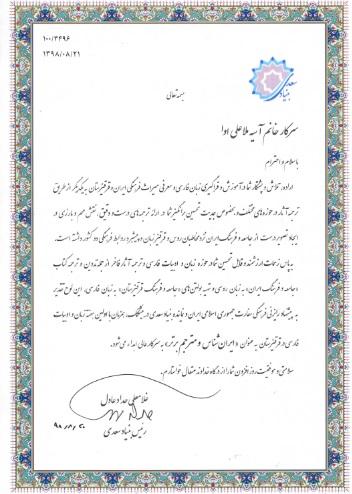 ۱۰۰/۳۴۹۶
۱۳۹۸/۰۸/۲۱
بنیاد سعدی
بسمه تعالی
سرکار خانم آسیه ملاعلی اوا
با سلام و احترام
اراده، تلاش و پشتکار شما در آموزش و فراگیری زبان فارسی و معرفی میراث فرهنگی ایران و قرقیزستان به یکدیگر از طریق
ترجمه آثار در حوزه‌های مختلف و بخصوص جدیت تحسین برانگیز شما در ارائه ترجمه‌های درست و دقیق، نقش مهم و بارزی در
ایجاد تصویر درست از جامعه و فرهنگ ایران نزد مخاطبان روس و قرقیز زبان و پیشبرد روابط فرهنگی دو کشور داشته است.
به پاس زحمات ارزشمند و قابل تحسین شما در حوزه زبان و ادبیات فارسی و ترجمه آثار فاخر از جمله تدوین و ترجمه کتاب
«جامعه و فرهنگ ایران» به زبان روسی و تهیه بولتن‌های «جامعه و فرهنگ قرقیزستان» به زبان فارسی، این لوح تقدیر
به پیشنهاد رایزنی فرهنگی سفارت جمهوری اسلامی ایران و نماینده بنیاد سعدی در بیشکک، همزمان با اولین هفته زبان و ادبیات
فارسی در قرقیزستان به عنوان «ایران شناس و مترجم برتر» به سرکار عالی اهدا می‌شود.
سلامتی و موفقیت روزافزون شما را از درگاه خداوند متعال خواستارم.
غلامعلی حداد عادل
رئیس بنیاد سعدی